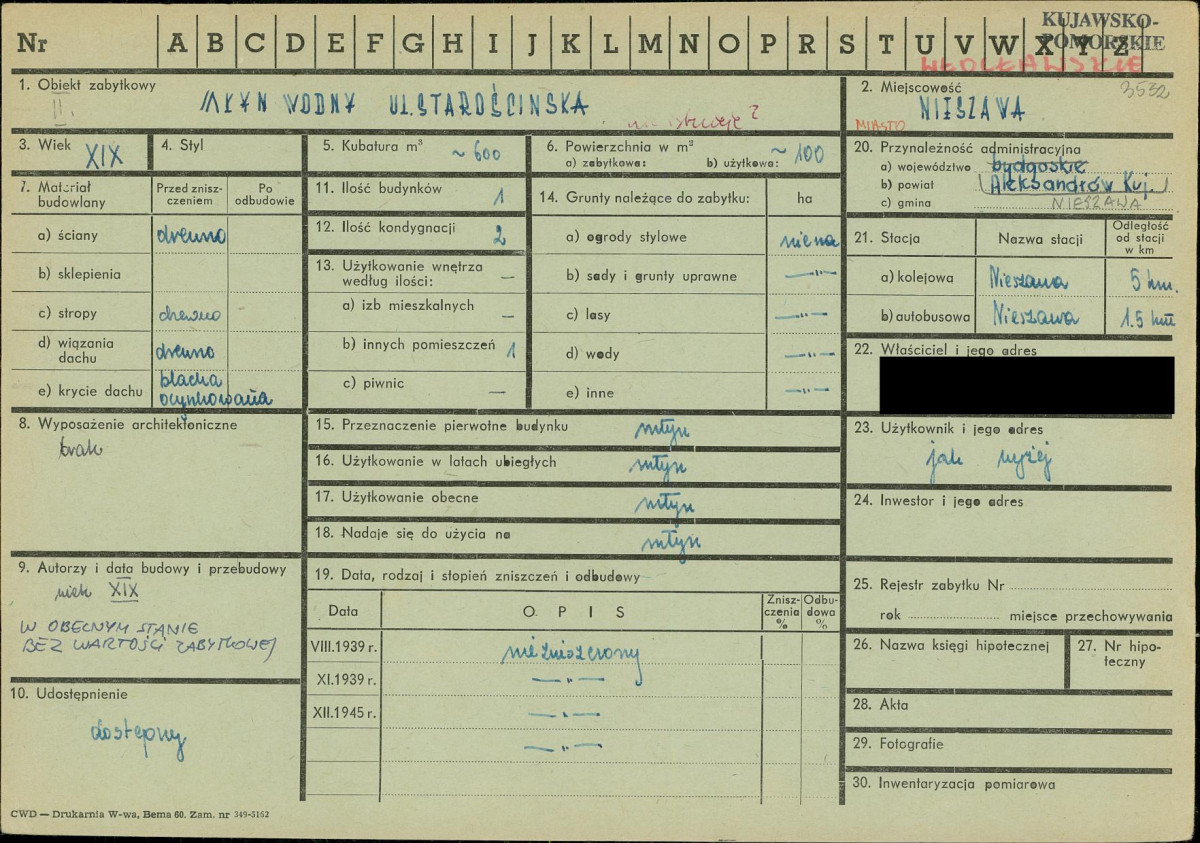 Nr A B C D E F G H I J K L M N O P R S T U V W X Y Z
KUJAWSKO-
POMORSKIE
WŁOCŁAWSKIE
1. Obiekt zabytkowy
II.
MŁYN WODNY UL. STAROŚCIŃSKA
nie istnieje?
2. Miejscowość
3532
MIASTO
NIESZAWA
3. Wiek XIX
4. Styl
5. Kubatura m³ ~ 600
6. Powierzchnia w m²
a) zabytkowa: b) użytkowa: ~ 100
20. Przynależność administracyjna
a) województwo bydgoskie
b) powiat (Aleksandrów Kuj.)
c) gmina NIESZAWA
7. Materiał budowlany
Przed zniszczeniem
Po odbudowie
a) ściany drewno
b) sklepienia
c) stropy drewno
d) wiązania dachu drewno
e) krycie dachu blacha ocynkowana
11. Ilość budynków 1
12. Ilość kondygnacji 2
13. Użytkowanie wnętrza według ilości: —
a) izb mieszkalnych —
b) innych pomieszczeń 1
c) piwnic —
14. Grunty należące do zabytku: ha
a) ogrody stylowe niema
b) sady i grunty uprawne —"—
c) lasy —"—
d) wody —"—
e) inne —"—
21. Stacja
Nazwa stacji
Odległość od stacji w km
a) kolejowa Nieszawa 5 km.
b) autobusowa Nieszawa 1.5 km
22. Właściciel i jego adres
8. Wyposażenie architektoniczne
brak
15. Przeznaczenie pierwotne budynku młyn
16. Użytkowanie w latach ubiegłych młyn
17. Użytkowanie obecne młyn
18. Nadaje się do użycia na młyn
23. Użytkownik i jego adres
jak wyżej
24. Inwestor i jego adres
9. Autorzy i data budowy i przebudowy
wiek XIX
W OBECNYM STANIE
BEZ WARTOŚCI ZABYTKOWEJ
10. Udostępnienie
dostępny
19. Data, rodzaj i stopień zniszczeń i odbudowy
Data
OPIS
Zniszczenia %
Odbudowa %
VIII.1939 r. niezniszczony
XI.1939 r. —"—
XII.1945 r. —"—
—"—
25. Rejestr zabytku Nr
rok miejsce przechowywania
26. Nazwa księgi hipotecznej
27. Nr hipoteczny
28. Akta
29. Fotografie
30. Inwentaryzacja pomiarowa
CWD — Drukarnia W-wa, Bema 60. Zam. nr 349-5162